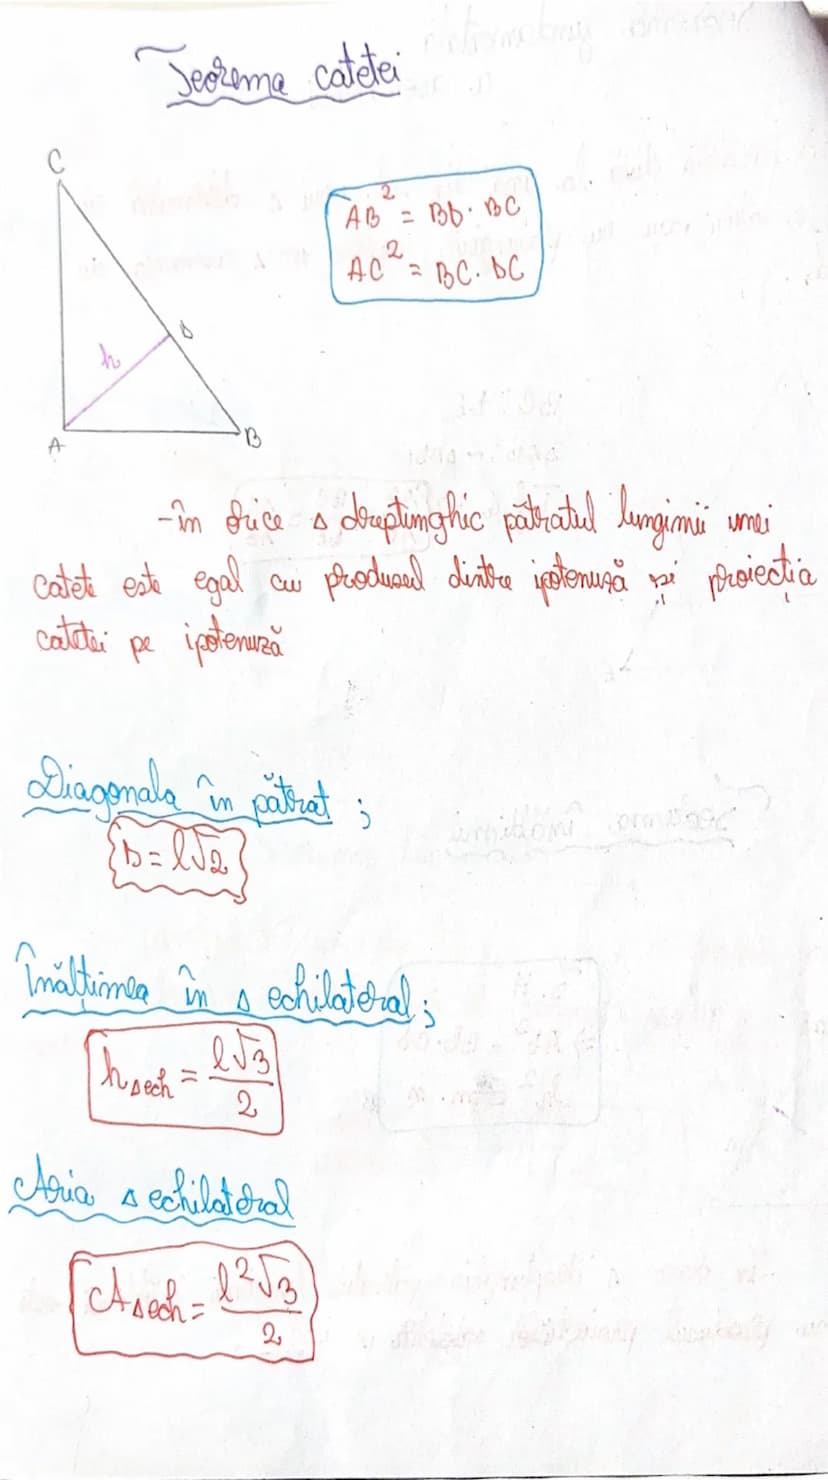 Teorema catetei
C
AB² = BD · BC
AC² = BC · DC
D
h
A
B
-în orice Δ dreptunghic pătratul lungimii unei
catete este egal cu produsul dintre ipotenuză și proiecția
catetei pe ipotenuză
Diagonala în pătrat ;
D = l√2
Înălțimea în Δ echilateral ;
hΔech = l√3/2
Aria Δ echilateral
AΔech = l²√3/2